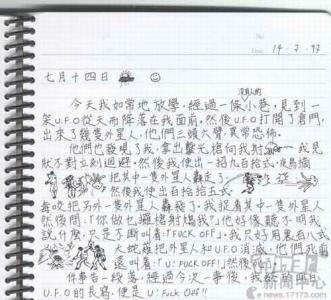 Date 14-7-97
七月十四日
沒有人的
今天我如常地放學,經過一條小巷,見到一
架U.F.O從天而降落在我面前,然後U.F.O打開了倉門,
出來了幾隻外星人,他們三頭六臂,異常恐怖。
他們也發現了我,拿出雷光槍向我射 我見
狀不對立刻迴避。然後我使出一招九百拾式
把其中一隻外星人轟走了
然後我使出百拾拾五式
把另外一隻外星人轟飛了。我捉着其中一隻外星人
然後問:「你做乜攞槍射鳩我?」他好像聽不明我
說什麼,只是不斷叫着「FUCK OFF」,我只好用裏百八式
大蛇薙把外星人和U.F.O消滅,他們
還叫着:「U!FUCK OFF!!」然後
件事告一段落,經過今次一事後,我
U.F.O的長寫,便是 U! FUCK OFF!!
新聞中心
news.17173.com